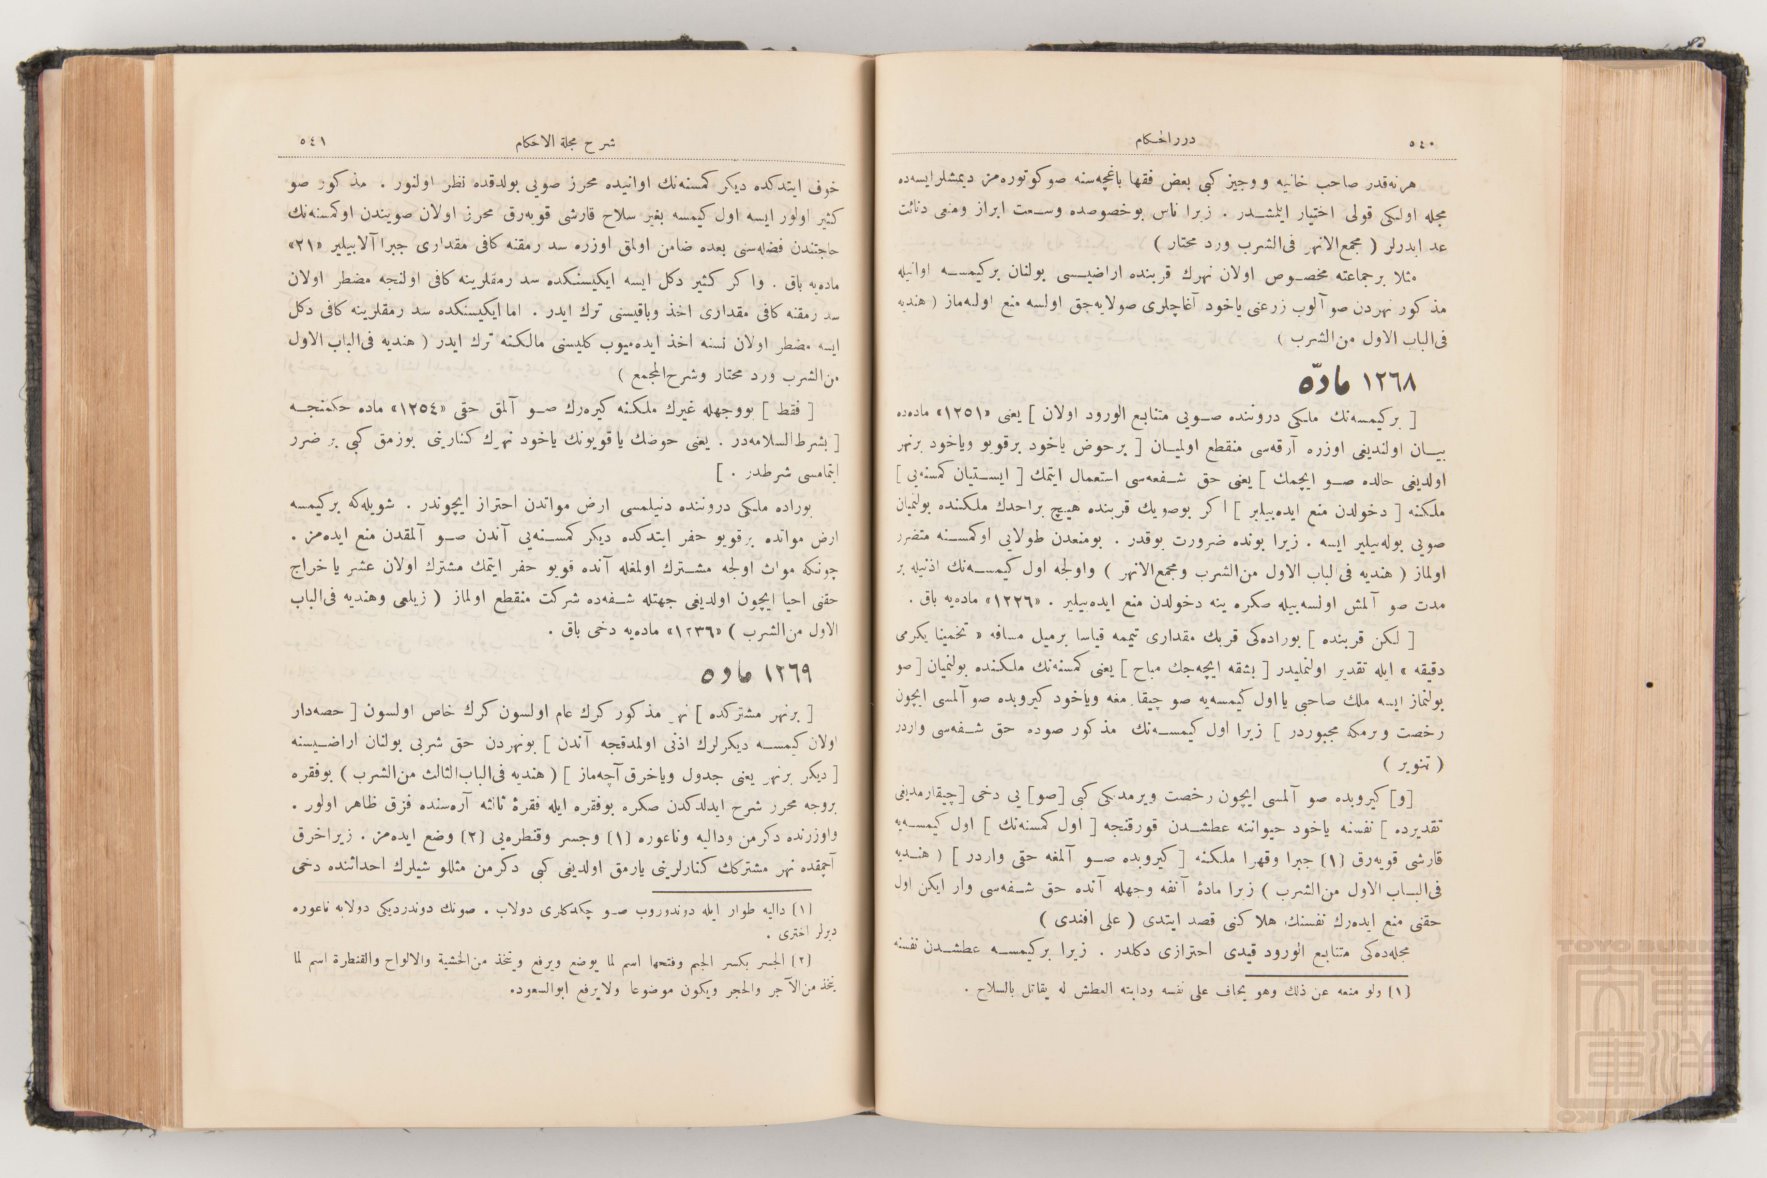 ٥٤٠
دررالحكام
هرنه‌قدر صاحب خانیه ووجیز كبی بعض فقها باغچه‌سنه صو كوتوره‌من دیمشلرایسه‌ده
مجله اولكی قولی اختیار ایلمشـدر . زیرا ناس بوخصوصده وسـعت ابراز ومنعی دنائت
عد ایدرلر ( مجمع‌الانهر فی‌الشرب ورد محتار )
مثلا برجماعته مخصـوص اولان نهرك قربنده اراضیـسی بولنان بركیمسـه اوانیله
مذكور نهردن صو آلوب زرعنی یاخود آغاچلری صولایه‌جق اولسه منع اولنه‌ماز ( هندیه
فی‌الباب الاول من‌الشرب )
١٢٦٨ مادّه
[ بركیمسه‌نك ملكی دروننده صـویی متتابع الورود اولان ] یعنی «١٢٥١» ماده‌ده
بیـان اولندیغی اوزره آرقه‌سی منقطع اولمیـان [ برحوض یاخود برقویو ویاخود برنهر
اولدیغی حالده صـو ایچمك ] یعنی حق شـفه‌سی استعمال ایتمك [ ایسـتیان كمسنه‌یی ]
ملكنه [ دخولدن منع ایده‌بیلیر ] اكر بوصویك قربنده هیچ براحدك ملكنده بولنمیان
صویی بوله‌بیلیر ایسه . زیرا بونده ضرورت یوقدر . بومنعدن طولایی اوكمسـنه متضرر
اولماز ( هندیه فی‌الباب الاول من‌الشرب ومجمع‌الانهر ) واولجه اول كیمسـه‌نك اذنیله بر
مدت صو آلمش اولسه‌بیله صكره ینه دخولدن منع ایده‌بیلیر . «١٢٢٦» ماده‌یه باق .
[ لكن قربنده ] بوراده‌كی قربك مقداری تیممه قیاسا برمیل مسافه « تخمینا یكرمی
دقیقه » ایله تقدیر اولنملیدر [ بشقه ایچه‌جك مباح ] یعنی كمسنه‌نك ملكنده بولنمیان [ صو
بولنماز ایسه ملك صاحبی یااول كیمسه‌یه صو چیقارمغه ویاخود كیروبده صو آلمسی ایچون
رخصت ویرمكه مجبوردر ] زیرا اول كیمسـه‌نك مذكور صوده حق شـفه‌سی واردر
( تنویر )
[و] كیروبده صو آلمسی ایچون رخصت ویرمدیكی كبی [صو] یی دخی [چیقارمدیغی
تقدیرده ] نفسنه یاخود حیواننه عطشـدن قورقنجه [ اول كمسنه‌نك ] اول كیمسـه‌یه
قارشی قویه‌رق (١) جبرا وقهرا ملكنه [ كیروبده صـو آلمغه حقی واردر ] ( هنـدیه
فی‌البـاب الاول من‌الشرب ) زیرا مادۀ آنفه وجهله آنده حق شـفه‌سی وار ایكن اول
حقنی منع ایده‌رك نفسنك هلاكنی قصد ایتدی ( علی افندی )
مجله‌ده‌كی متتابع الورود قیدی احترازی دكلدر . زیرا بركیمسـه عطشـدن نفسنه
(١) ولو منعه عن ذلك وهو یخاف علی نفسه ودابته العطش له یقاتل بالسلاح .
٥٤١
شرح مجلة الاحكام
خوف ایتدكده دیكر كمسنه‌نك اوانیده محرز صویی بولدقده نظر اولنور . مذكور صو
كثیر اولور ایسه اول كیمسه بغیر سلاح قارشی قویه‌رق محرز اولان صویندن اوكمسنه‌نك
حاجتندن فضله‌سنی بعده ضامن اولمق اوزره سد رمقنه كافی مقداری جبرا آلابیلیر «٢١»
ماده‌یه باق . واكر كثیر دكل ایسه ایكیسنكده سد رمقلرینه كافی اولنجه مضطر اولان
سد رمقنه كافی مقداری اخذ وباقیسنی ترك ایدر . اما ایكیسنكده سد رمقلرینه كافی دكل
ایسه مضطر اولان نسنه اخذ ایده‌میوب كلیسنی مالكنه ترك ایدر ( هندیه فی‌الباب الاول
من‌الشرب ورد محتار وشرح‌المجمع )
[ فقط ] بووجهله غیرك ملكنه كیره‌رك صـو آلمق حقی «١٢٥٤» ماده حكمنجـه
[ بشرط‌السلامه‌در . یعنی حوضك یا قویونك یاخود نهرك كنارینی بوزمق كبی بر ضرر
ایتمامسی شرطدر . ]
بوراده ملكی دروننده دنیلمسی ارض مواتدن احتراز ایچوندر . شویله‌كه بركیمسه
ارض مواتده برقویو حفر ایتدكده دیكر كمسـنه‌یی آندن صـو آلمقدن منع ایده‌من .
چونكه موات اولجه مشـترك اولمغله آنده قویو حفر ایتمك مشترك اولان عشر یا خراج
حقنی احیا ایچون اولدیغی جهتله شـفه‌ده شركت منقطع اولماز ( زیلعی وهندیه فی‌الباب
الاول من‌الشرب ) «١٢٣٦» ماده‌یه دخی باق .
١٢٦٩ ماده
[ برنهر مشتركده ] نهر مذكور كرك عام اولسون كرك خاص اولسون [ حصه‌دار
اولان كیمسـه دیكرلرك اذنی اولمدقجه آندن ] بونهردن حق شربی بولنان اراضـیسنه
[ دیكر برنهر یعنی جدول ویاخرق آچه‌ماز ] ( هندیه فی‌الباب‌الثالث من‌الشرب ) بوفقره
بروجه محرر شرح ایدلدكدن صكره بوفقره ایله فقرۀ ثالثه آره‌سنده فرق ظاهر اولور .
واوزرنده دكرمن ودالیه وناعوره (١) وجسر وقنطره‌یی (٢) وضع ایده‌من . زیراخرق
آچمقده نهر مشتركك كنارلرینی یارمق اولدیغی كبی دكرمن مثللو شیلرك احداثنده دخی
(١) دالیه طوار ایله دوندوروب صـو چكدكلری دولاب . صونك دوندردیكی دولابه ناعوره
دیرلر اختری .
(٢) الجسر بكسر الجیم وفتحها اسم لما یوضع ویرفع ویتخذ من‌الخشبة والالواح والقنطرة اسم لما
یتخذ من‌الآجر والحجر ویكون موضوعا ولایرفع ابوالسعود.